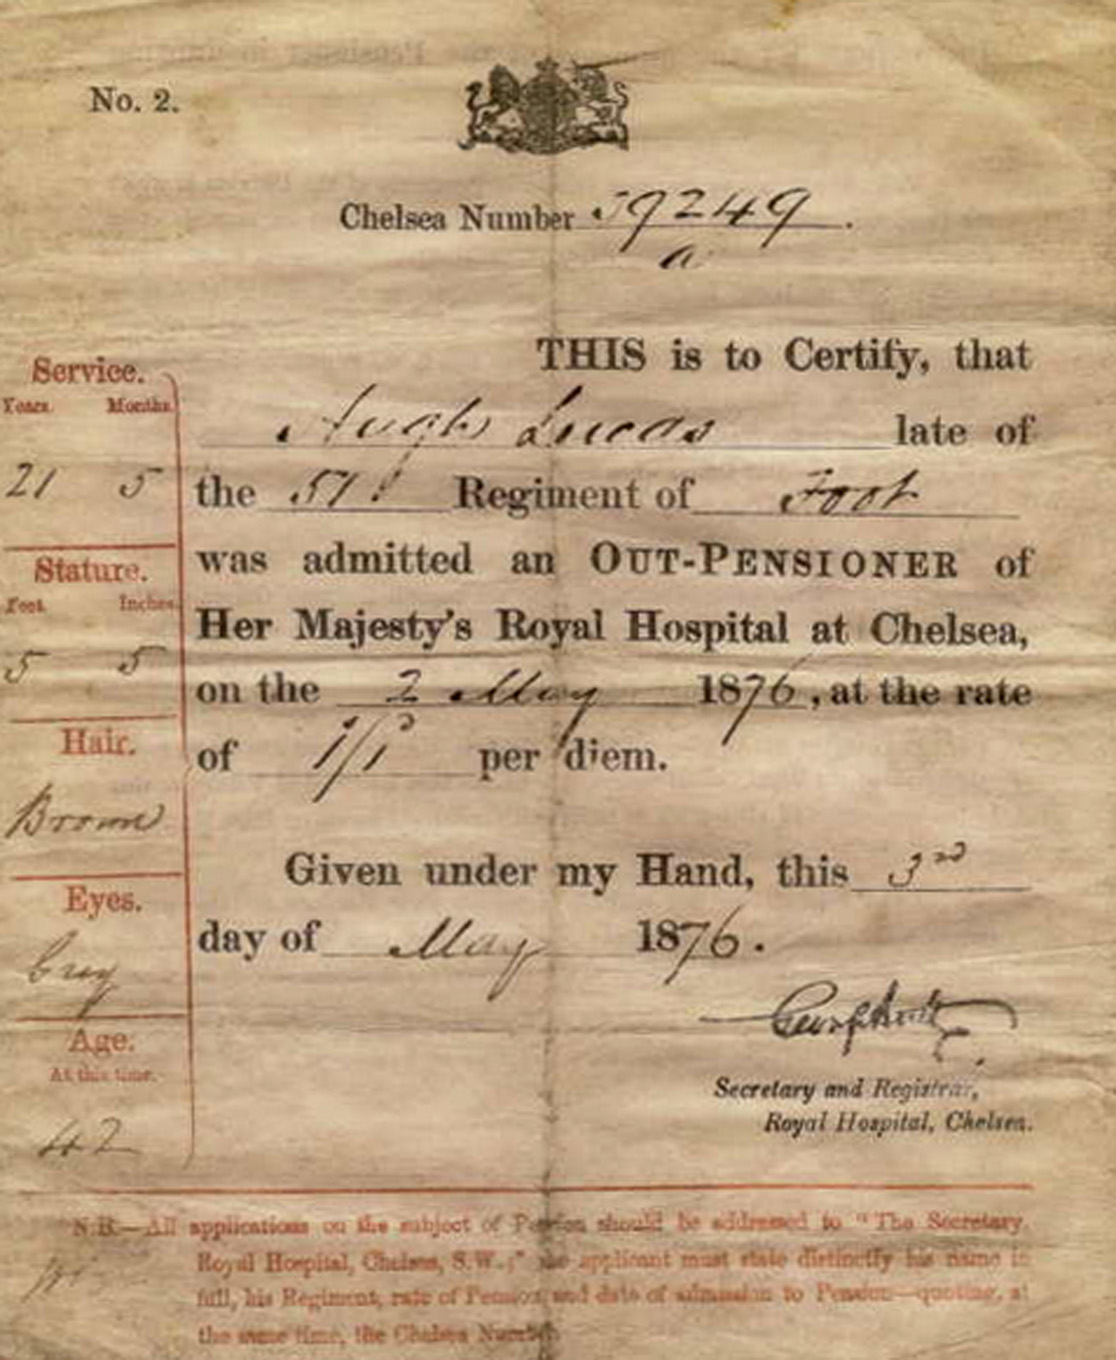 No. 2.
Chelsea Number 59249
a
Service.
Years. Months.
21 5
Stature.
Feet. Inches.
5 5
Hair.
Brown
Eyes.
Grey
Age.
At this time.
42
THIS is to Certify, that
Hugh Lucas late of
the 51st Regiment of Foot
was admitted an OUT-PENSIONER of
Her Majesty's Royal Hospital at Chelsea,
on the 2 May 1876, at the rate
of 1/1 per diem.
Given under my Hand, this 3rd
day of May 1876.
Secretary and Registrar,
Royal Hospital, Chelsea.
N.B.—All applications on the subject of Pension should be addressed to "The Secretary,
Royal Hospital, Chelsea, S.W.;" the applicant must state distinctly his name in
full, his Regiment, rate of Pension, and date of admission to Pension—quoting, at
the same time, the Chelsea Number.